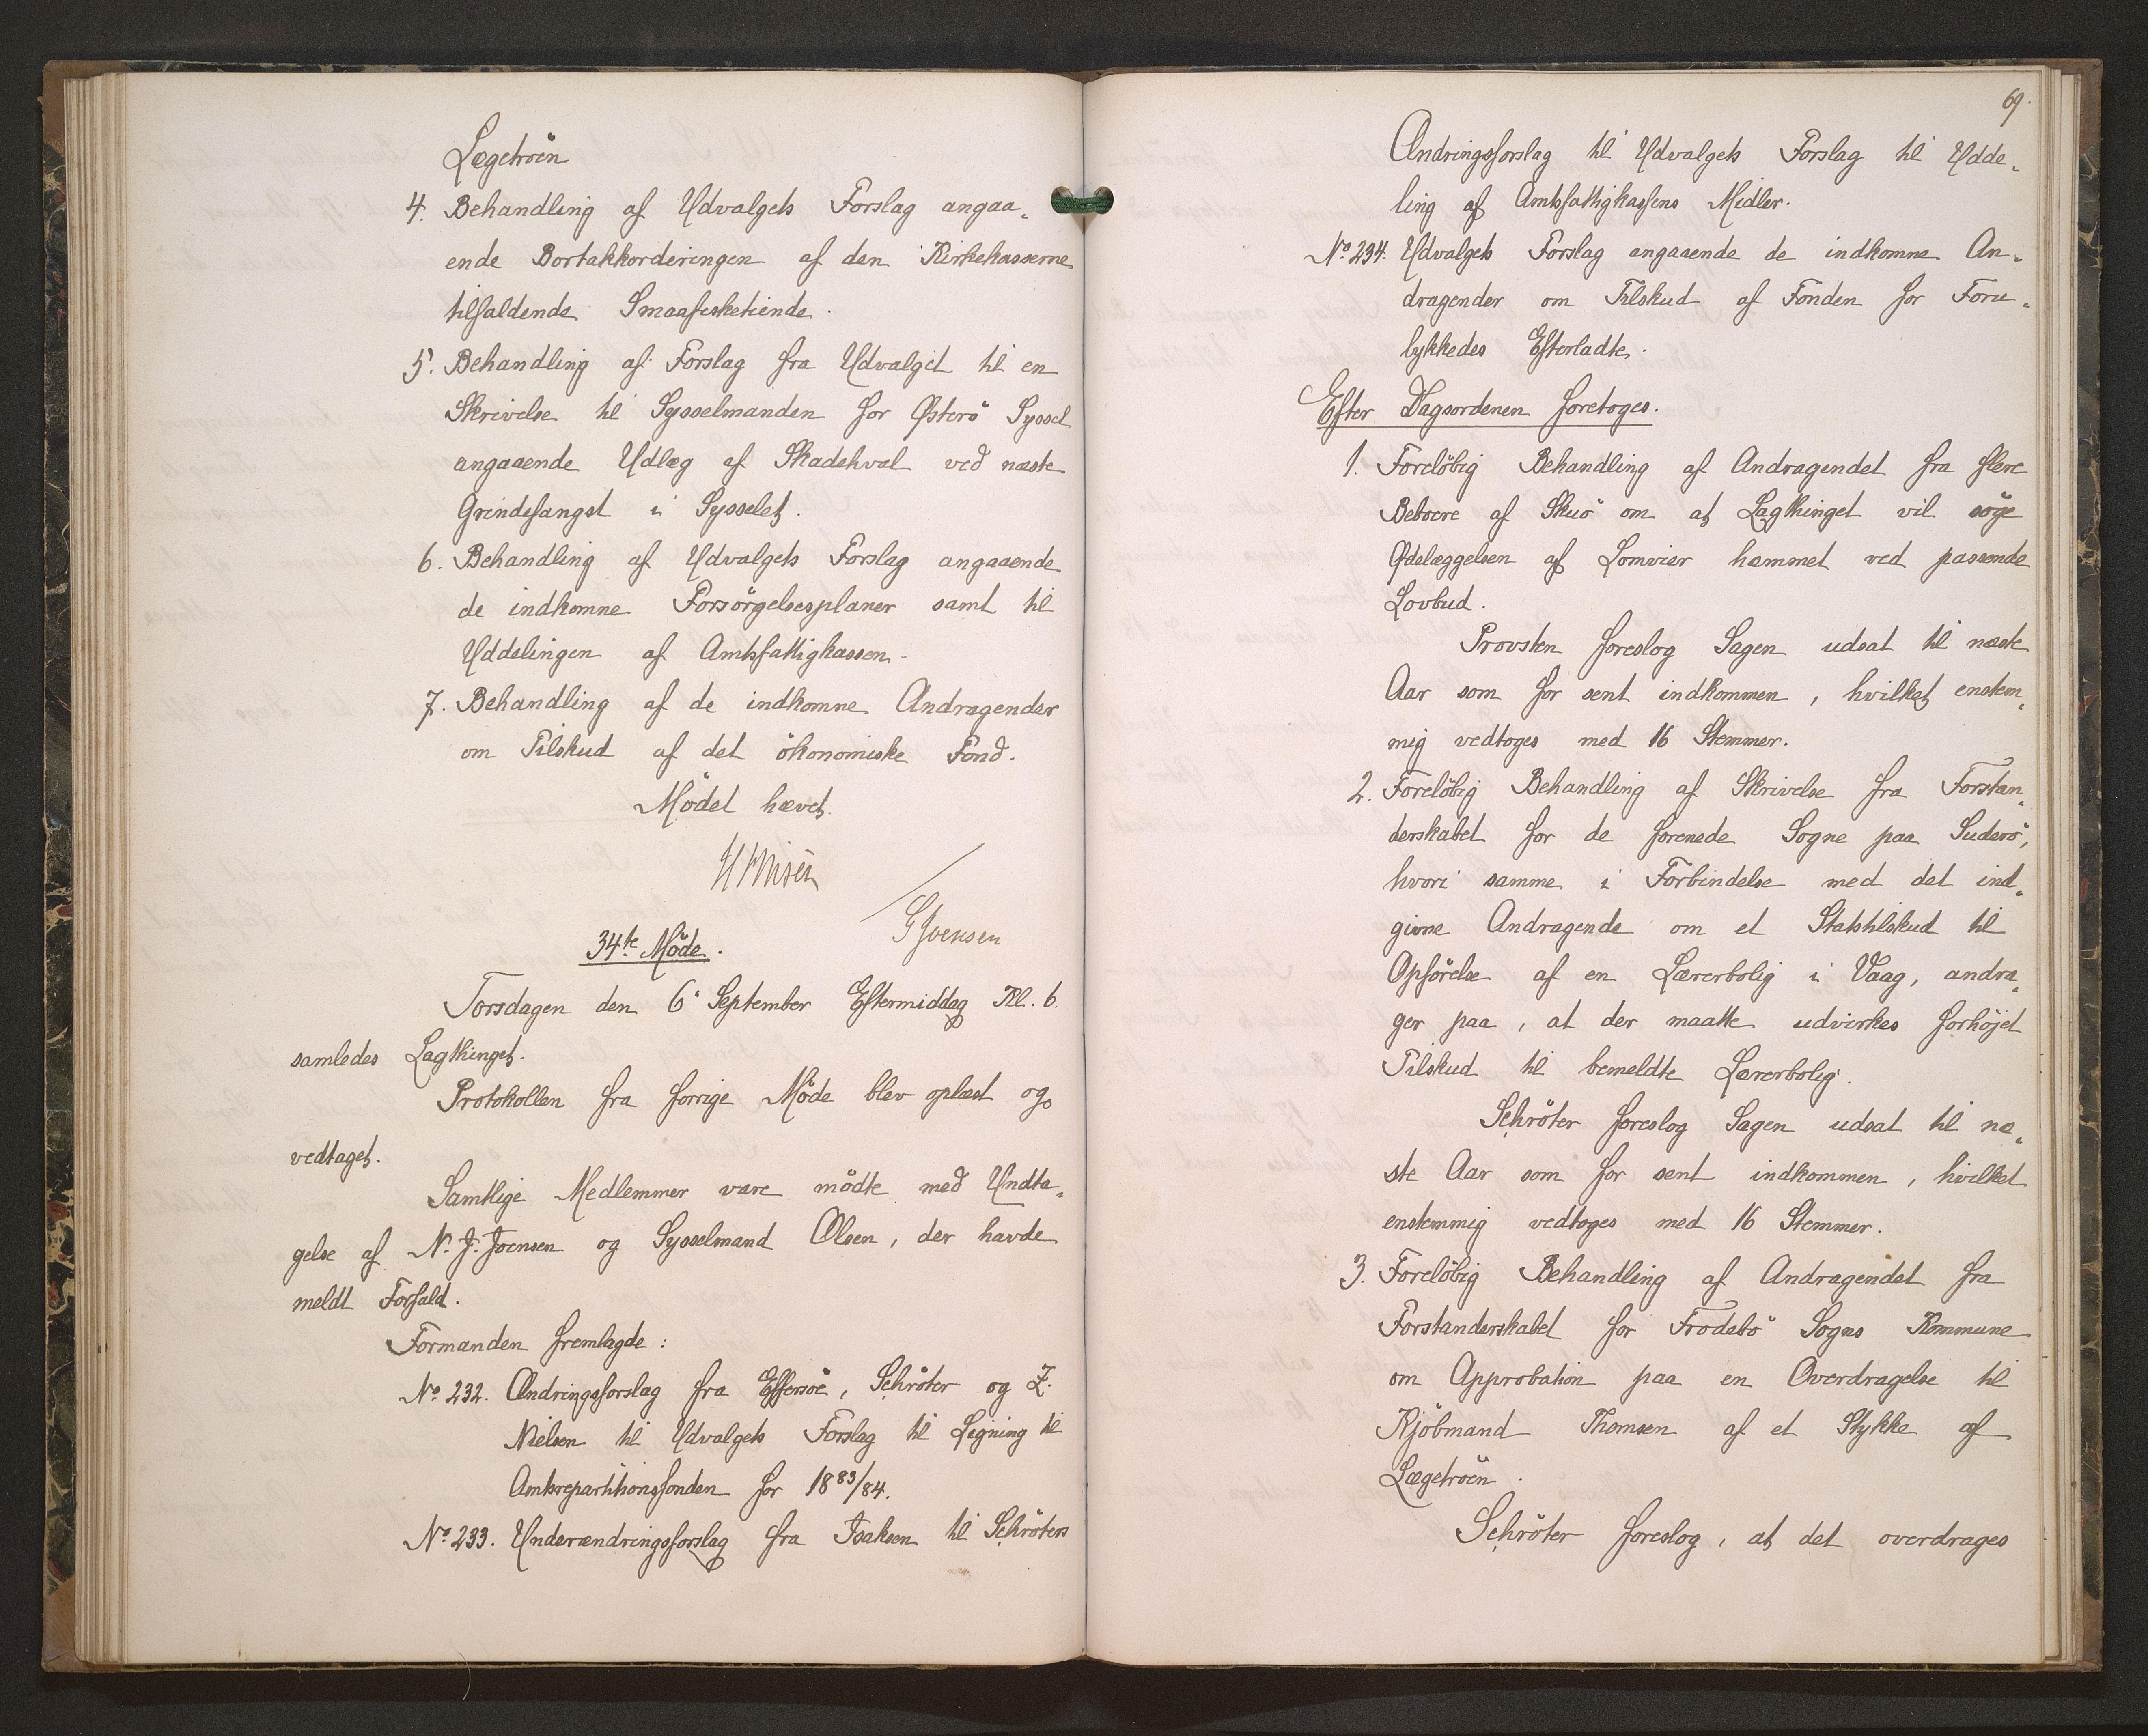 Lægetröen
4. Behandling af Udvalgets Forslag angaa„
ende Bortakkorderingen af den Kirkekasserne
tilfaldende Smaafisketiende.
5. Behandling af Forslag fra Udvalget til en
Skrivelse til Sysselmanden for Østerö Syssel
angaaende Udlæg af Skadehval ved næste
Grindefangst i Sysselet.
6. Behandling af Udvalgets Forslag angaaende
de indkomne Forsörgelsesplaner samt til
Uddelingen af Amtsfattigkassen.
7. Behandling af de indkomne Andragender
om Tilskud af det ökonomiske Fond.
Mödet hævet.
GJoensen
34te Möde.
Torsdagen den 6 September Eftermiddag Kl. 6.
samledes Lagthinget.
Protokollen fra forrige Möde blev oplæst og
vedtaget.
Samtlige Medlemmer vare mödte med Undta„
gelse af N. J. Joensen og Sysselmand Olsen, der havde
meldt Forfald.
Formanden fremlagde:
No 232. Ændringsforslag fra Effersöe, Schröter og Z.
Nielsen til Udvalgets Forslag til Ligning til
Amtsrepartitionsfonden for 1883/84.
No 233. Underændringsforslag fra Isaksen til Schröters
69.
Ændringsforslag til Udvalgets Forslag til Udde„
ling af Amtsfattigkassens Midler.
No 234. Udvalgets Forslag angaaende de indkomne An„
dragender om Tilskud af Fonden for Foru„
lykkedes Efterladte.
Efter Dagsordenen foretoges.
1. Forelöbig Behandling af Andragendet fra flere
Beboere af Skuö om at Lagthinget vil söge
Ödelæggelsen af Lomvier hæmmet ved passende
Lovbud.
Provsten foreslog Sagen udsat til næste
Aar som for sent indkommen, hvilket enstem„
mig vedtoges med 16 Stemmer.
2. Forelöbig Behandling af Skrivelse fra Forstan„
derskabet for de forenede Sogne paa Suderö,
hvori samme i Forbindelse med det ind„
givne Andragende om et Statstilskud til
Opförelse af en Lærerbolig i Vaag, andra„
ger paa, at der maatte udvirkes forhöjet
Tilskud til bemeldte Lærerbolig.
Schröter foreslog Sagen udsat til næ„
ste Aar som for sent indkommen, hvilket
enstemmig vedtoges med 16 Stemmer.
3. Forelöbig Behandling af Andragendet fra
Forstanderskabet for Frodebö Sogns Kommune
om Approbation paa en Overdragelse til
Kjöbmand Thomsen af et Stykke af
Lægetröen.
Schröter foreslog, at det overdrages